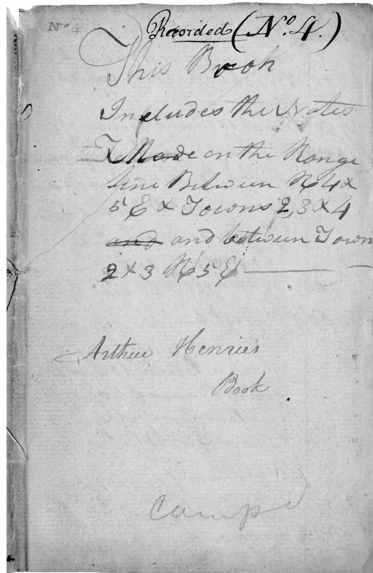 No 4
Recorded (No. 4.)
This Book
Includes the Notes
Made on the Range
line Between R 4 &
5 E & Towns 2, 3 & 4
and and between Town
2 & 3 R 5 E
Arthur Henries
Book
Comp d